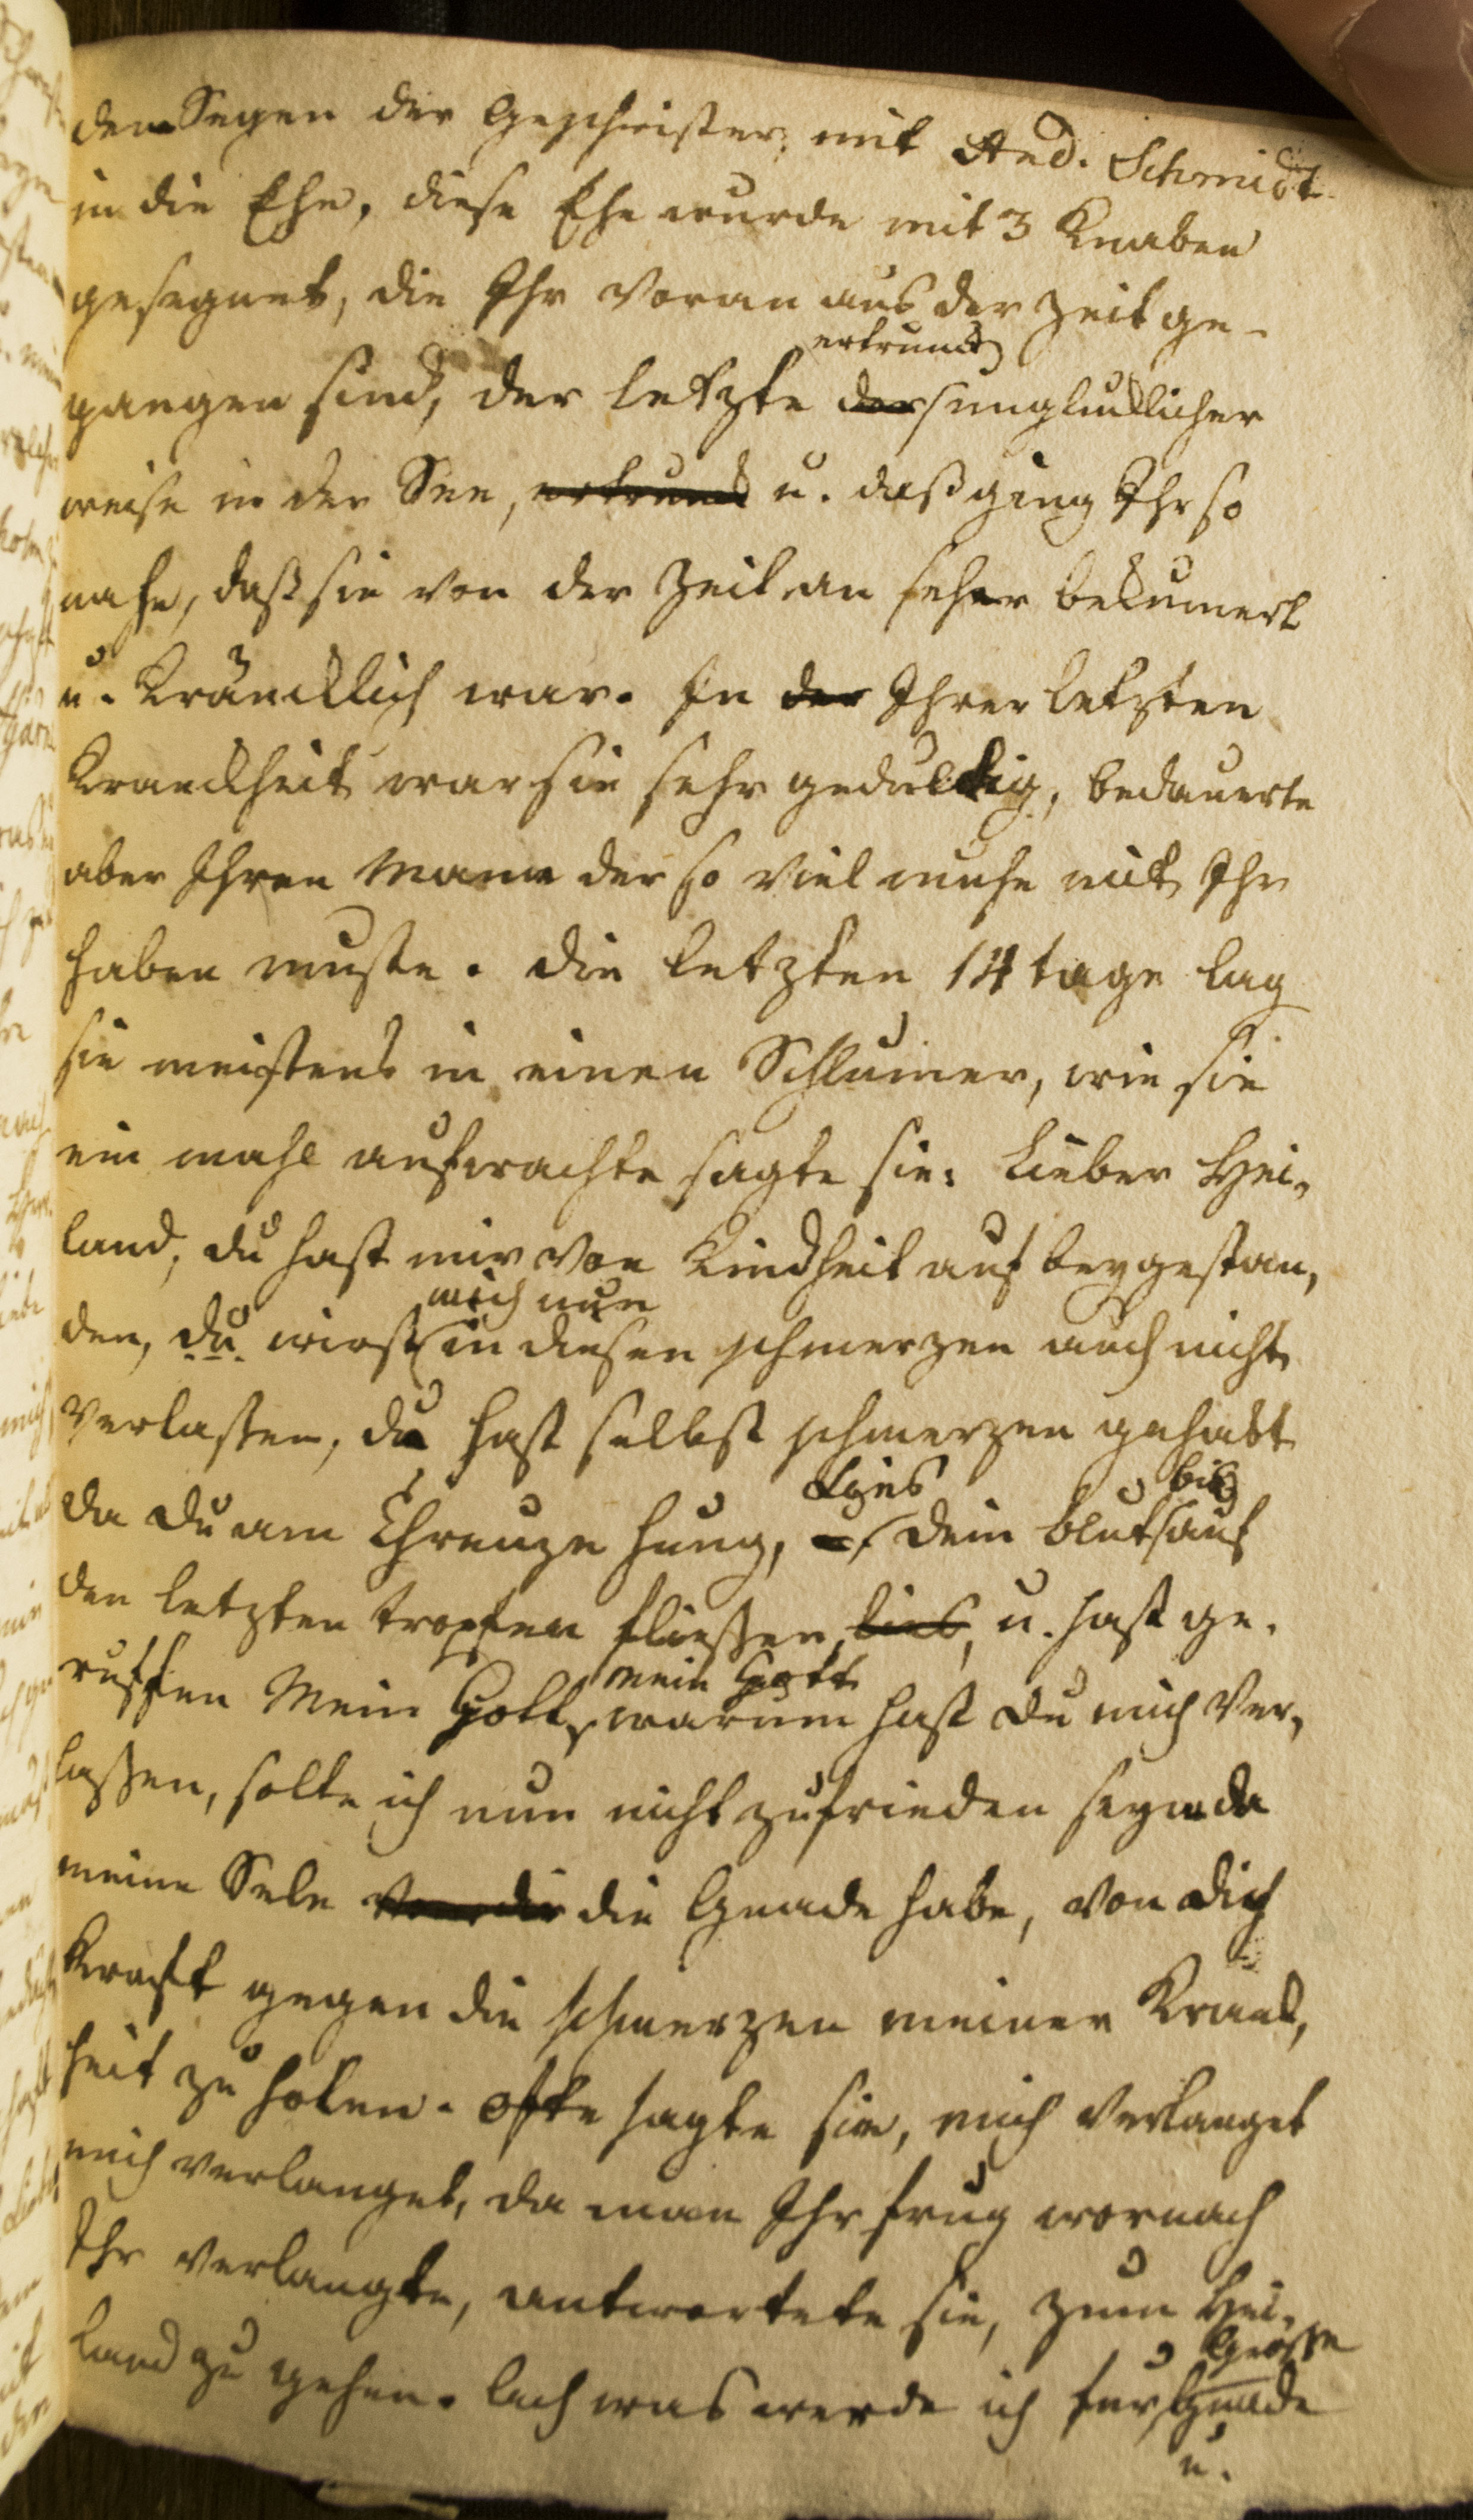 dem Segen der Geschwister, mit And. Schmidt
in die Ehe, diese Ehe wurde mit 3 Knaben
gesegnet, die Ihr voran aus der Zeit ge-
ertrunck
gangen sind, der letzte der unglucklicher
weise in der See, ertrunck u. daß ging Ihr so
nahe, daß sie von der Zeit an seher bekumert
u. Kräncklich war. In der Ihrer letzten
Kranckheit war sie sehr geduldig, bedauerte
aber Ihren Mann der so viel muhe mit Ihr
haben muste. Die letzten 14 tage lag
sie meistens in einen Schlumer, wie sie
ein mahl aufwachte sagte sie: Lieber Hei-
land, du hast mir von Kindheit auf beygestan-
mich nun
den, du wirst in diesen schmerzen auch nicht
verlaßen, du hast selbst schmerzen gehabt
ließ bis
da du am Chreuze hung, u. dein blut auf
den letzten tropfen fließen ließ, u. hast ge-
mein Gott
ruffen Mein Gott, warum hast du mich Ver-
laßen, solte ich nun nicht zufrieden seyn da
meine Sele von dir die Gnade habe, von dich
Kraft gegen die schmerzen meiner Kranck-
heit zu holen. ofte sagte sie, mich verlanget
mich verlanget, da man Ihr frug wornach
Ihr verlangte, antwortete sie, zum Hei-
Große
land zu gehen. Ach was werde ich fur Gnade
u.